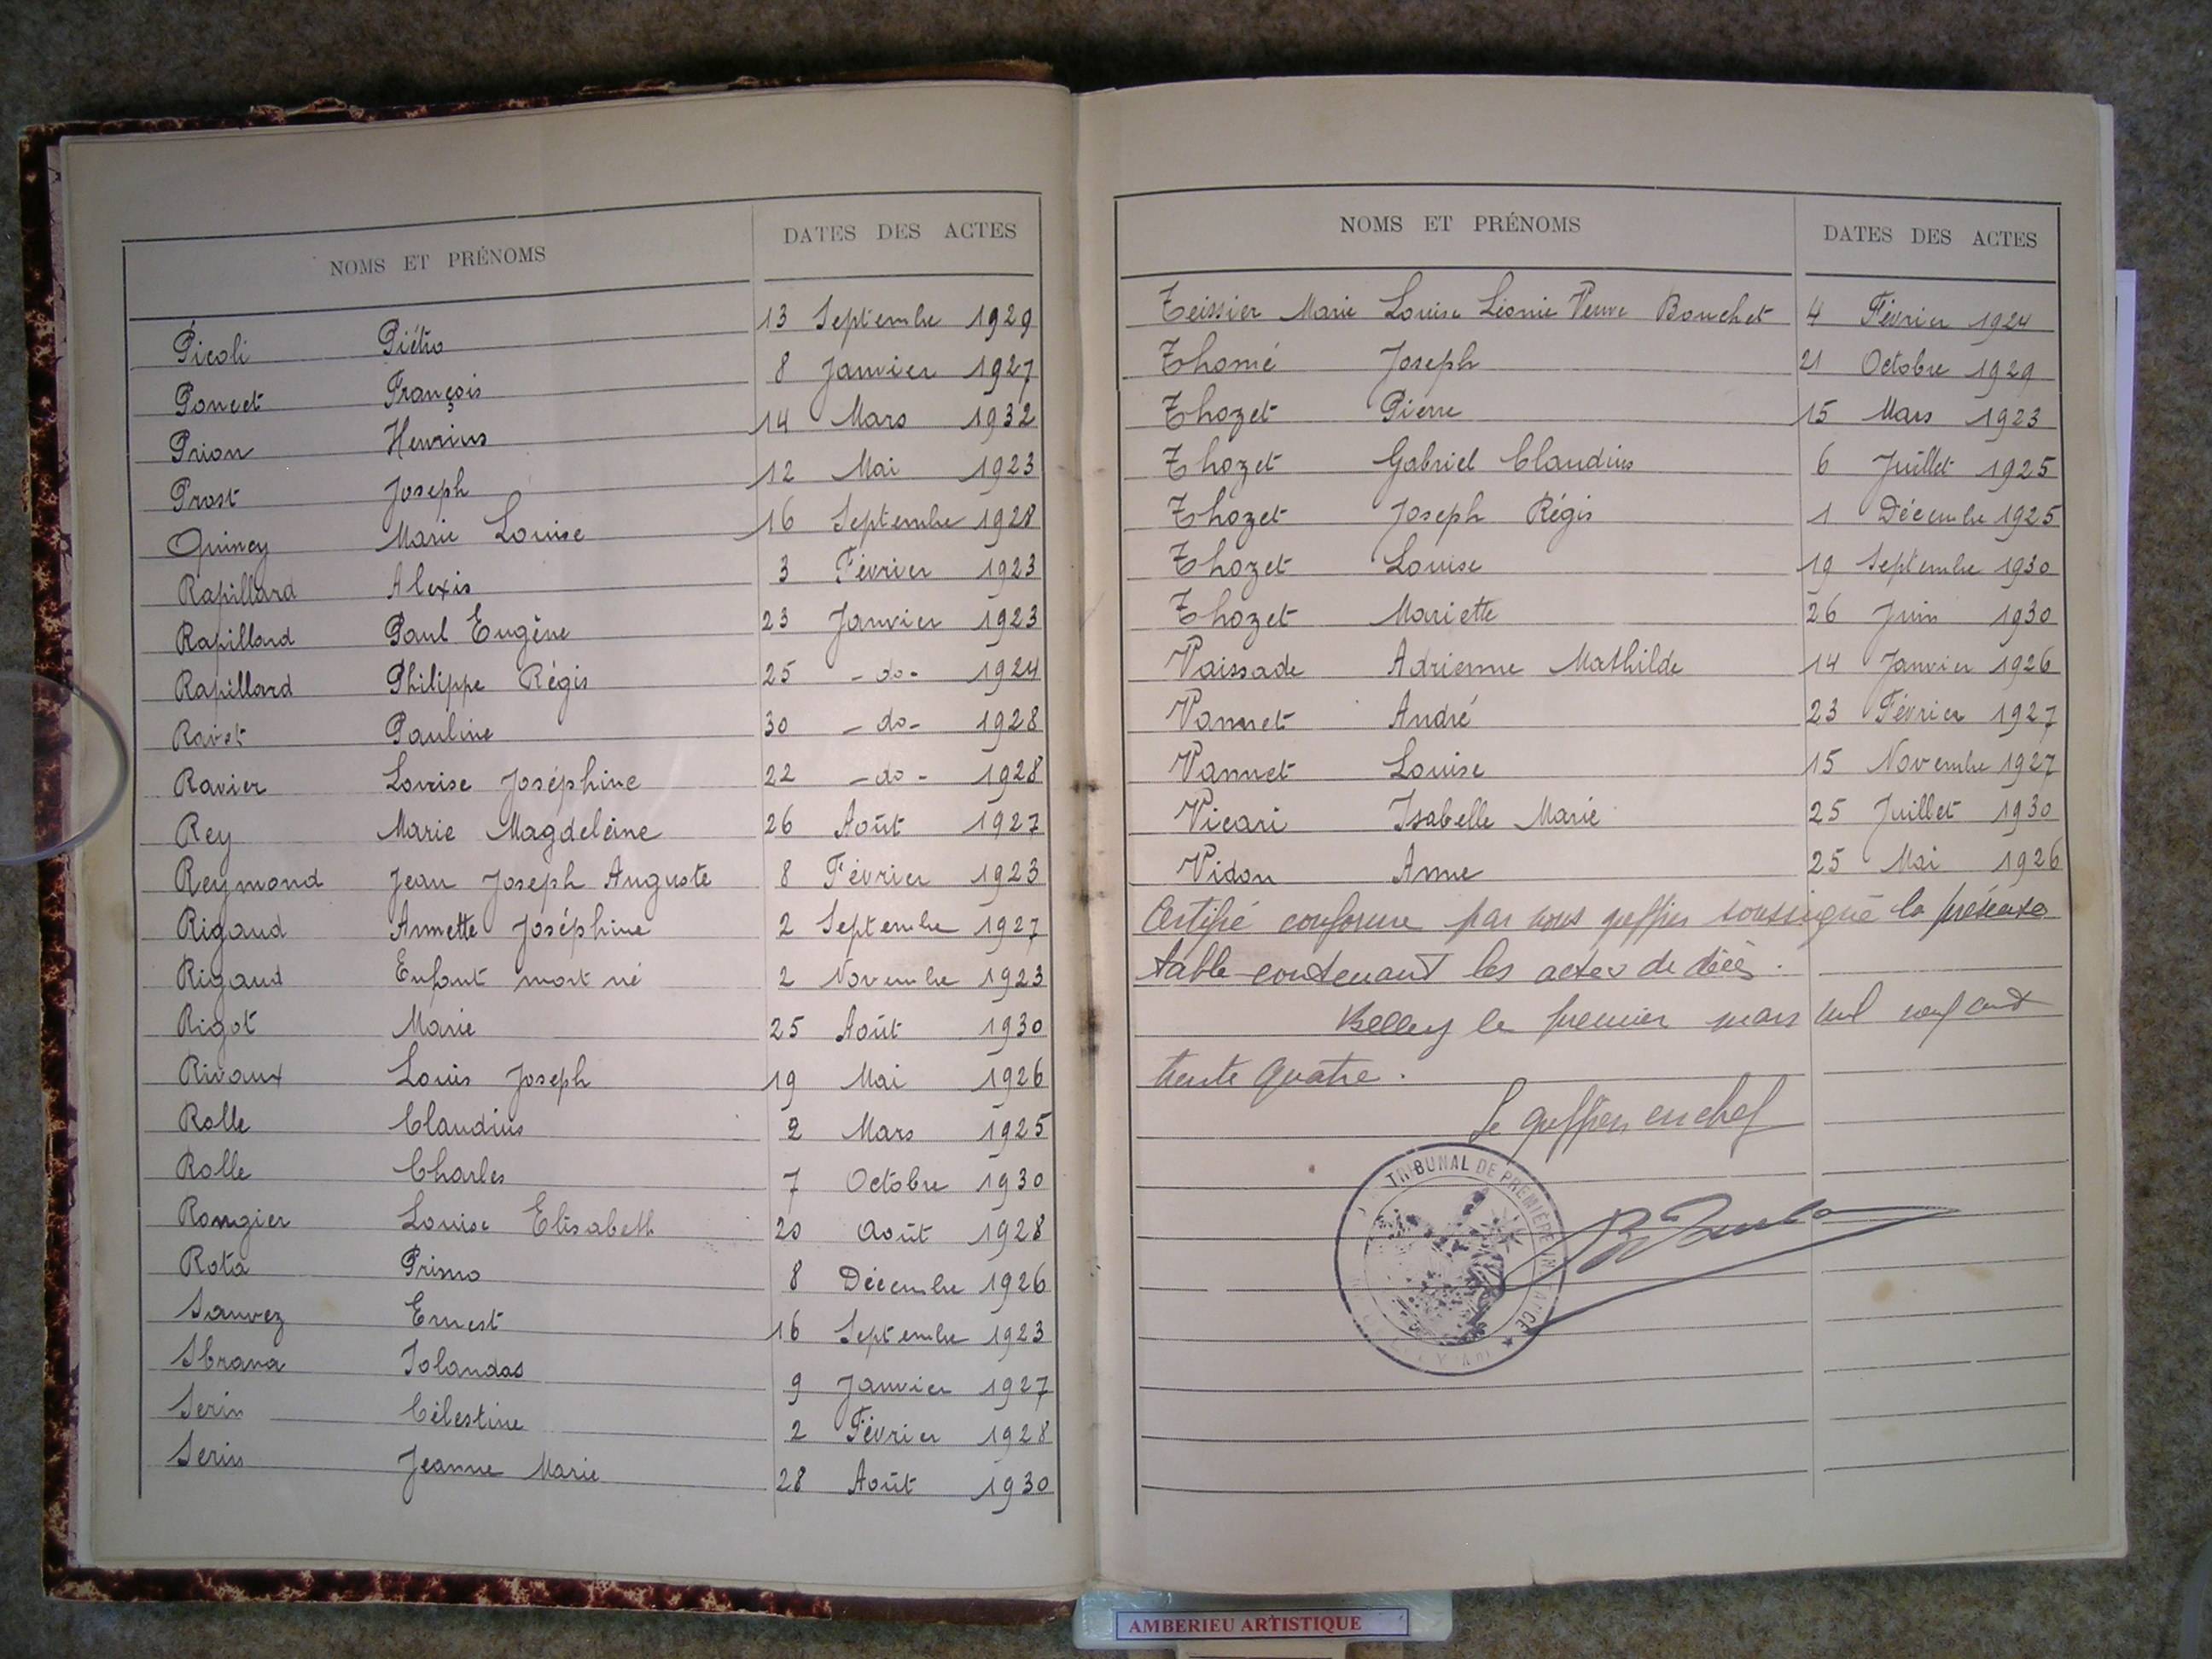 NOMS ET PRÉNOMS DATES DES ACTES
Picoli Piétro 13 Septembre 1929
Poncet François 8 Janvier 1927
Prion Henrius 14 Mars 1932
Prost Joseph 12 Mai 1923
Quincy Marie Louise 16 Septembre 1928
Rapillard Alexis 3 Février 1923
Rapillard Paul Eugène 23 Janvier 1923
Rapillard Philippe Régis 25 - do - 1924
Ravet Pauline 30 - do - 1928
Ravier Louise Joséphine 22 - do - 1928
Rey Marie Magdeleine 26 Août 1927
Reymond Jean Joseph Auguste 8 Février 1923
Rigaud Annette Joséphine 2 Septembre 1927
Rigaud Enfant mort né 2 Novembre 1923
Rigot Marie 25 Août 1930
Rivaux Louis Joseph 19 Mai 1926
Rolle Claudius 2 Mars 1925
Rolle Charles 7 Octobre 1930
Rongier Louise Elisabeth 20 Août 1928
Rota Primo 8 Décembre 1926
Sauvez Ernest 16 Septembre 1923
Sbrava Iolandas 9 Janvier 1927
Serin Célestine 2 Février 1928
Serin Jeanne Marie 28 Août 1930
NOMS ET PRÉNOMS DATES DES ACTES
Teissier Marie Louise Léonie Veuve Bouchet 4 Février 1924
Thomé Joseph 21 Octobre 1929
Thozet Pierre 15 Mars 1923
Thozet Gabriel Claudius 6 Juillet 1925
Thozet Joseph Régis 1 Décembre 1925
Thozet Louise 19 Septembre 1930
Thozet Mariette 26 Juin 1930
Vaissade Adrienne Mathilde 14 Janvier 1926
Vannet André 23 Février 1927
Vannet Louise 15 Novembre 1927
Vicari Isabelle Marie 25 Juillet 1930
Vidon Anne 25 Mai 1926
Certifié conforme par nous greffier soussigné la présente
table contenant les actes de décès.
Belley le premier mars mil neuf cent
trente quatre.
Le greffier en chef
TRIBUNAL DE PREMIÈRE INSTANCE
AMBERIEU ARTISTIQUE